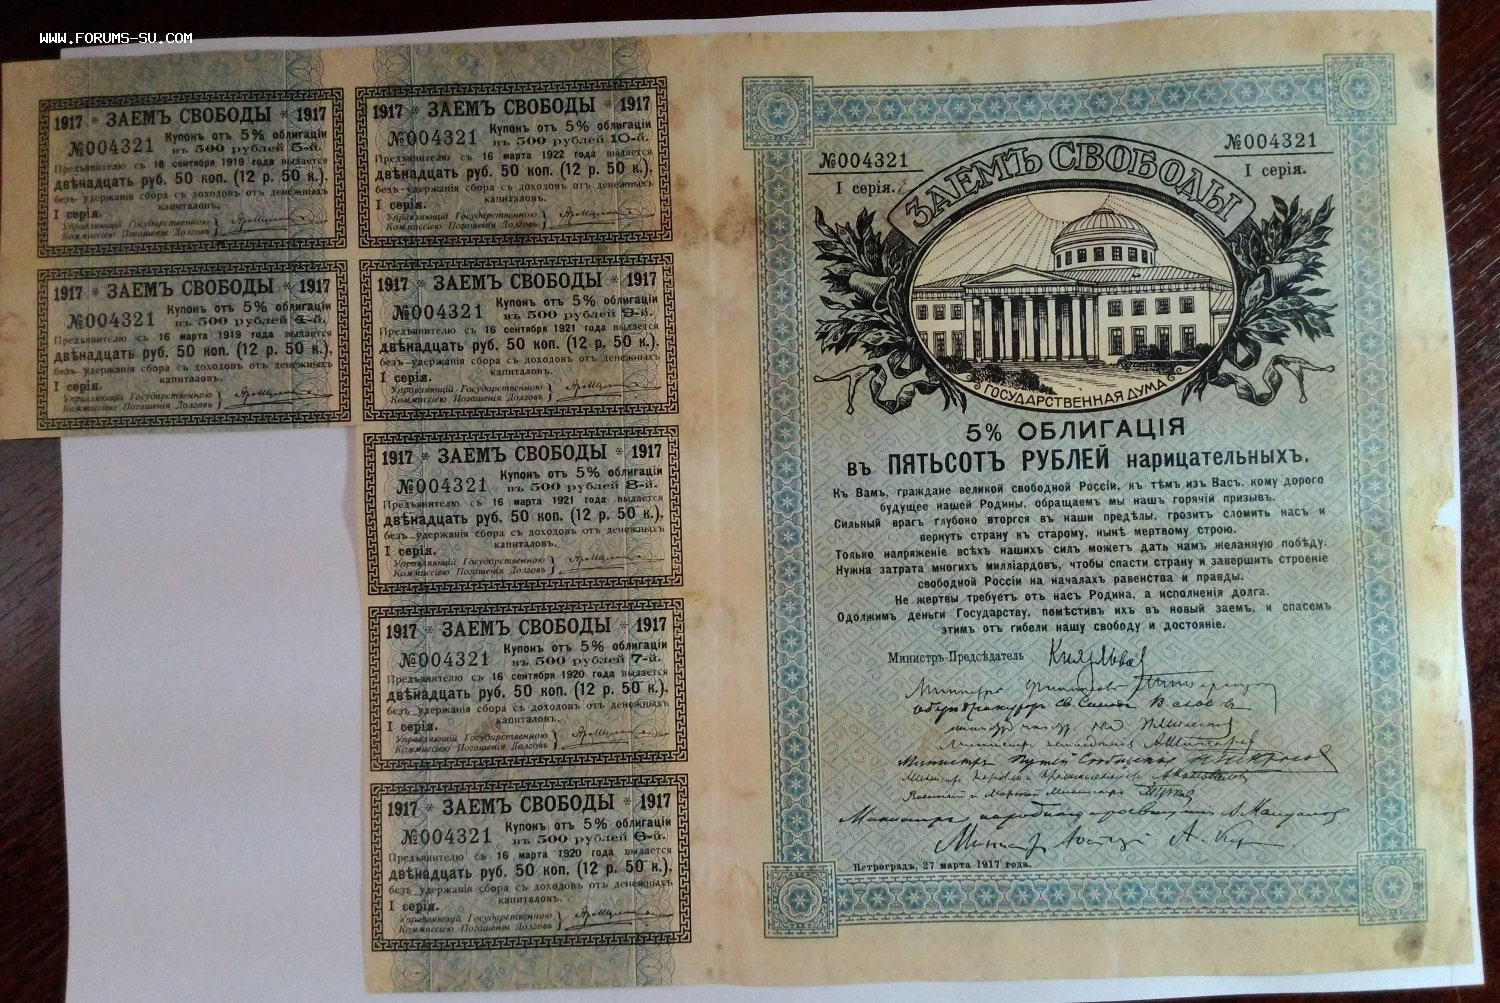 WWW.FORUMS-SU.COM
1917 * ЗАЕМЪ СВОБОДЫ * 1917
№004321 Купонъ отъ 5% облигаціи
въ 500 рублей 5-й.
Предъявителю съ 16 сентября 1919 года выдается
двѣнадцать руб. 50 коп. (12 р. 50 к.),
безъ удержанія сбора съ доходовъ отъ денежныхъ
капиталовъ.
I серія.
Управляющій Государственною
Коммиссіею Погашенія Долговъ
1917 * ЗАЕМЪ СВОБОДЫ * 1917
№004321 Купонъ отъ 5% облигаціи
въ 500 рублей 4-й.
Предъявителю съ 16 марта 1919 года выдается
двѣнадцать руб. 50 коп. (12 р. 50 к.),
безъ удержанія сбора съ доходовъ отъ денежныхъ
капиталовъ.
I серія.
Управляющій Государственною
Коммиссіею Погашенія Долговъ
1917 * ЗАЕМЪ СВОБОДЫ * 1917
№004321 Купонъ отъ 5% облигаціи
въ 500 рублей 10-й.
Предъявителю съ 16 марта 1922 года выдается
двѣнадцать руб. 50 коп. (12 р. 50 к.),
безъ удержанія сбора съ доходовъ отъ денежныхъ
капиталовъ.
I серія.
Управляющій Государственною
Коммиссіею Погашенія Долговъ
1917 * ЗАЕМЪ СВОБОДЫ * 1917
№004321 Купонъ отъ 5% облигаціи
въ 500 рублей 9-й.
Предъявителю съ 16 сентября 1921 года выдается
двѣнадцать руб. 50 коп. (12 р. 50 к.),
безъ удержанія сбора съ доходовъ отъ денежныхъ
капиталовъ.
I серія.
Управляющій Государственною
Коммиссіею Погашенія Долговъ
1917 * ЗАЕМЪ СВОБОДЫ * 1917
№004321 Купонъ отъ 5% облигаціи
въ 500 рублей 8-й.
Предъявителю съ 16 марта 1921 года выдается
двѣнадцать руб. 50 коп. (12 р. 50 к.),
безъ удержанія сбора съ доходовъ отъ денежныхъ
капиталовъ.
I серія.
Управляющій Государственною
Коммиссіею Погашенія Долговъ
1917 * ЗАЕМЪ СВОБОДЫ * 1917
№004321 Купонъ отъ 5% облигаціи
въ 500 рублей 7-й.
Предъявителю съ 16 сентября 1920 года выдается
двѣнадцать руб. 50 коп. (12 р. 50 к.),
безъ удержанія сбора съ доходовъ отъ денежныхъ
капиталовъ.
I серія.
Управляющій Государственною
Коммиссіею Погашенія Долговъ
1917 * ЗАЕМЪ СВОБОДЫ * 1917
№004321 Купонъ отъ 5% облигаціи
въ 500 рублей 6-й.
Предъявителю съ 16 марта 1920 года выдается
двѣнадцать руб. 50 коп. (12 р. 50 к.),
безъ удержанія сбора съ доходовъ отъ денежныхъ
капиталовъ.
I серія.
Управляющій Государственною
Коммиссіею Погашенія Долговъ
№004321
I серія.
№004321
I серія.
ЗАЕМЪ СВОБОДЫ
ГОСУДАРСТВЕННАЯ ДУМА
5% ОБЛИГАЦІЯ
въ ПЯТЬСОТЪ РУБЛЕЙ нарицательныхъ.
Къ Вамъ, граждане великой свободной Россіи, къ тѣмъ изъ Васъ, кому дорого
будущее нашей Родины, обращаемъ мы нашъ горячій призывъ.
Сильный врагъ глубоко вторгся въ наши предѣлы, грозитъ сломить насъ и
вернуть страну къ старому, нынѣ мертвому строю.
Только напряженіе всѣхъ нашихъ силъ можетъ дать намъ желанную побѣду.
Нужна затрата многихъ милліардовъ, чтобы спасти страну и завершить строеніе
свободной Россіи на началахъ равенства и правды.
Не жертвы требуетъ отъ насъ Родина, а исполненія долга.
Одолжимъ деньги Государству, помѣстивъ ихъ въ новый заемъ, и спасемъ
этимъ отъ гибели нашу свободу и достояніе.
Министръ-Предсѣдатель Князь Львов
Министръ финансовъ
Министръ Путей Сообщенія
Министръ народнаго просвѣщенія А. Мануйлов
Министръ Юстиціи А. Керенскій
Петроградъ, 27 марта 1917 года.